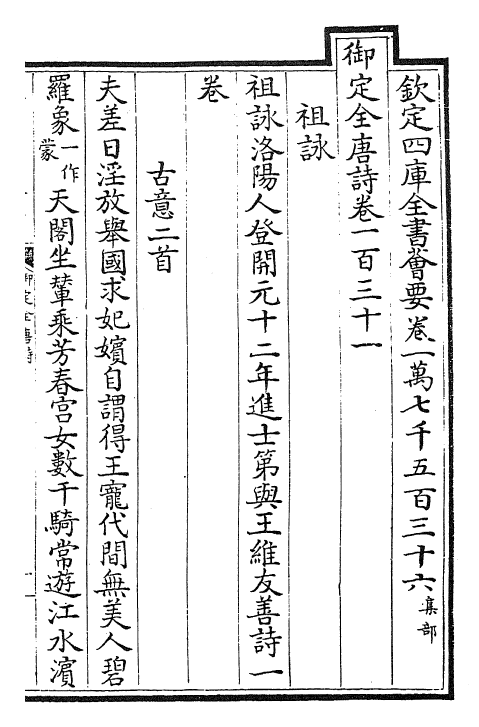 欽定四庫全書薈要卷一萬七千五百三十六集部
御定全唐詩卷一百三十一
祖詠
祖詠洛陽人登開元十二年進士第與王維友善詩一
卷
古意二首
夫差日淫放舉國求妃嬪自謂得王寵代間無美人碧
羅象一作蒙天閣坐輦乘芳春宮女數千騎常遊江水濱
御定全唐詩